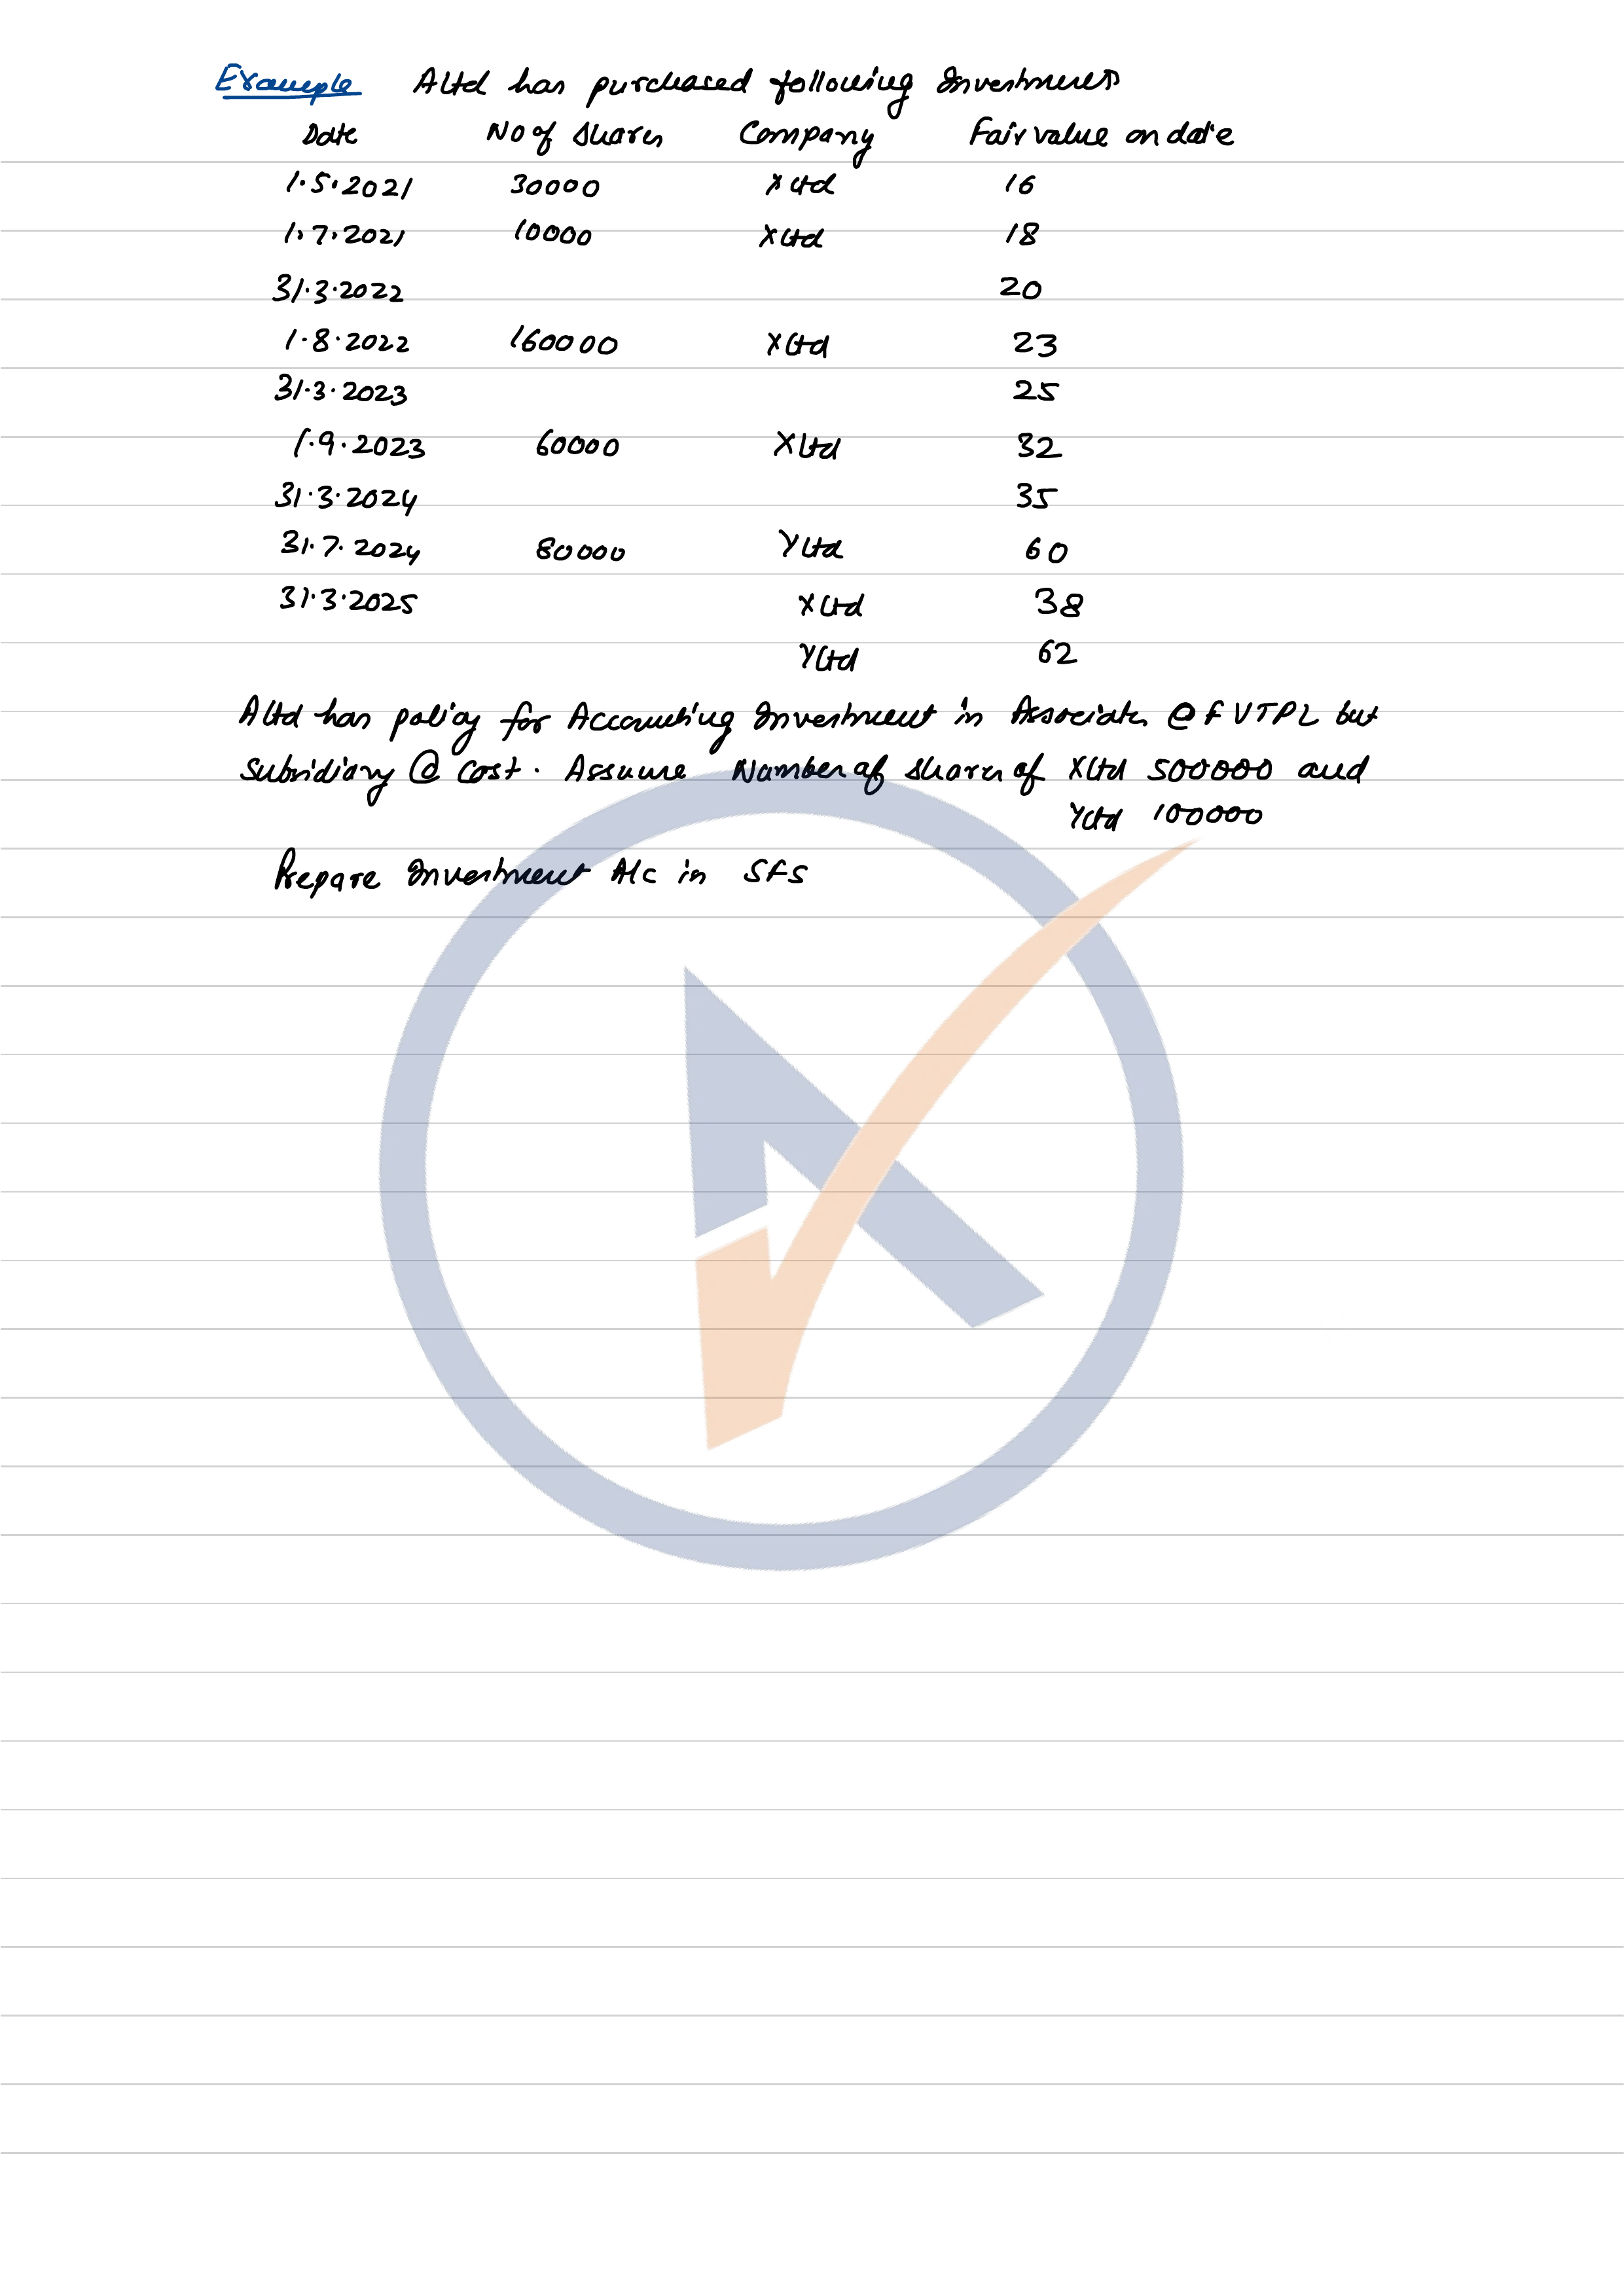 Example A Ltd has purchased following Investments
Date No of Shares Company Fair value on date
1.5.2021 30000 X Ltd 16
1.7.2021 10000 X Ltd 18
31.3.2022 20
1.8.2022 160000 X Ltd 23
31.3.2023 25
1.9.2023 60000 X Ltd 32
31.3.2024 35
31.7.2024 80000 Y Ltd 60
31.3.2025 X Ltd 38
Y Ltd 62
A Ltd has policy for Accounting Investment in Associates @ FVTPL but
Subsidiary @ Cost. Assume Number of shares of X Ltd 500000 and
Y Ltd 100000
Prepare Investment A/c in SFS